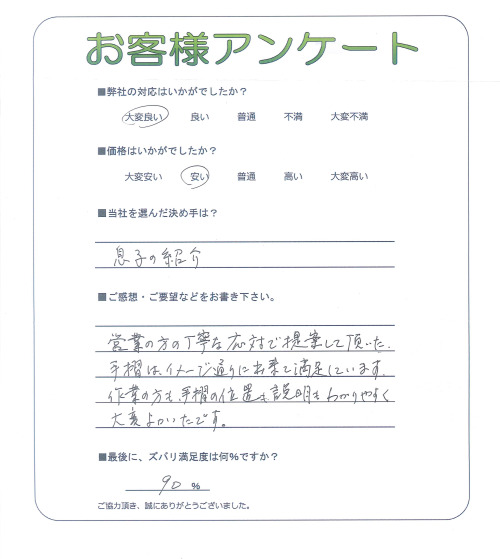 お客様アンケート
■弊社の対応はいかがでしたか？
大変良い 良い 普通 不満 大変不満
■価格はいかがでしたか？
大変安い 安い 普通 高い 大変高い
■当社を選んだ決め手は？
息子の紹介
■ご感想・ご要望などをお書き下さい。
営業の方の丁寧な応対で提案して頂いた.
手摺は、イメージ通りに出来て満足しています.
作業の方も、手摺の位置も説明もわかりやすく
大変よかったです。
■最後に、ズバリ満足度は何%ですか？
90 %
ご協力頂き、誠にありがとうございました。